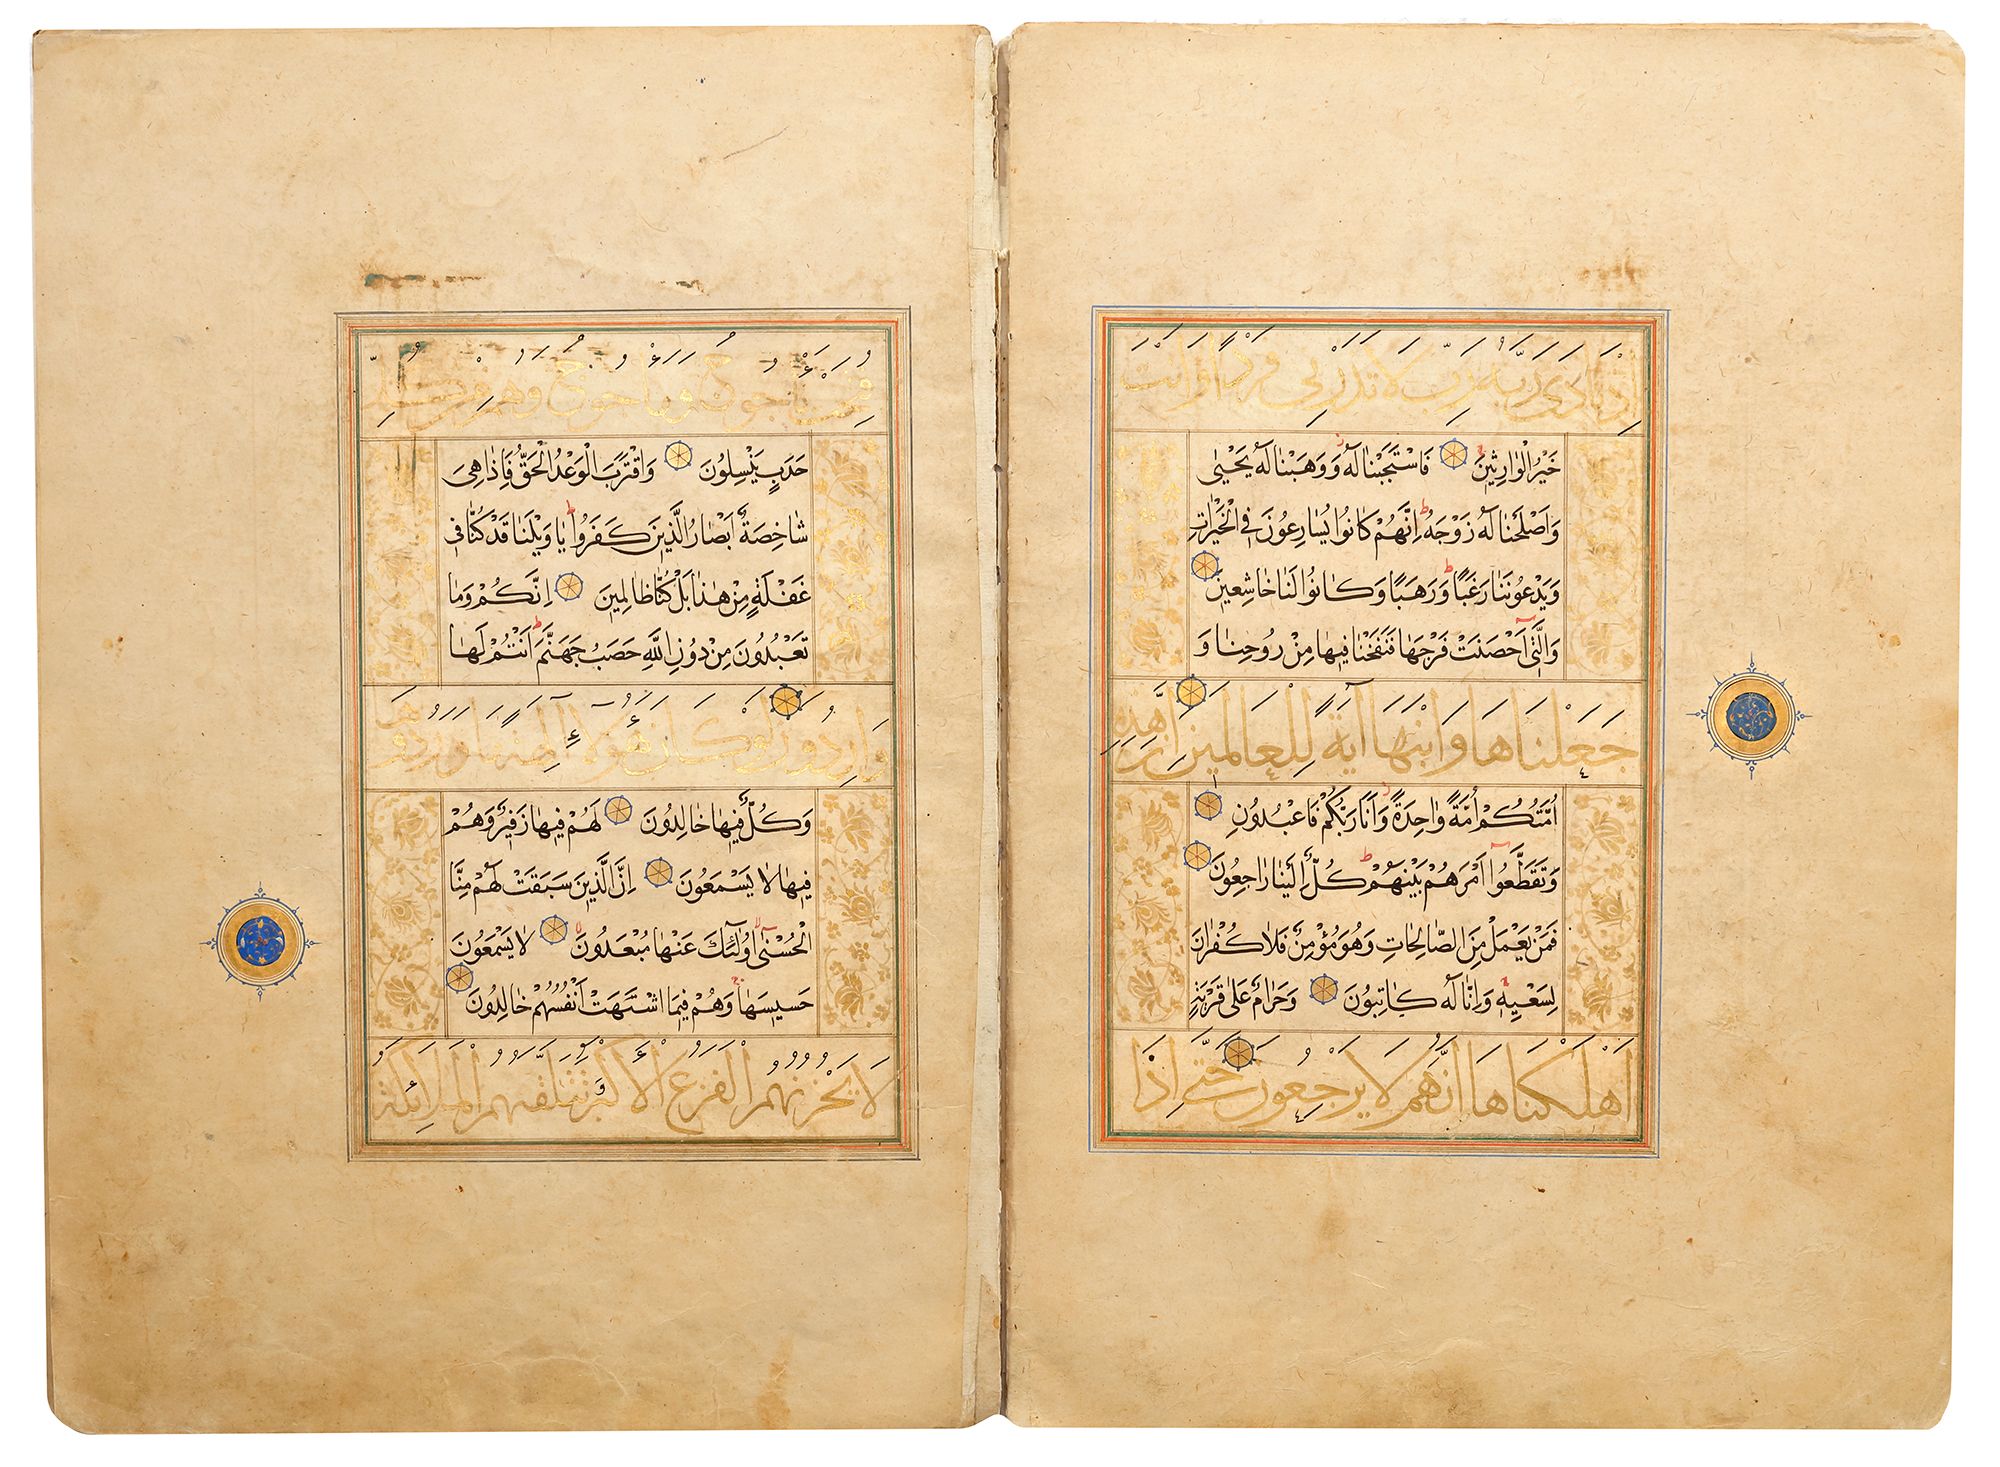 إِذْ نَادَىٰ رَبَّهُ رَبِّ لَا تَذَرْنِي فَرْدًا وَأَنْتَ
خَيْرُ الْوَارِثِينَ فَاسْتَجَبْنَا لَهُ وَوَهَبْنَا لَهُ يَحْيَىٰ
وَأَصْلَحْنَا لَهُ زَوْجَهُ إِنَّهُمْ كَانُوا يُسَارِعُونَ فِي الْخَيْرَاتِ
وَيَدْعُونَنَا رَغَبًا وَرَهَبًا وَكَانُوا لَنَا خَاشِعِينَ
وَالَّتِي أَحْصَنَتْ فَرْجَهَا فَنَفَخْنَا فِيهَا مِنْ رُوحِنَا وَ
جَعَلْنَاهَا وَابْنَهَا آيَةً لِلْعَالَمِينَ إِنَّ هَٰذِهِ
أُمَّتُكُمْ أُمَّةً وَاحِدَةً وَأَنَا رَبُّكُمْ فَاعْبُدُونِ
وَتَقَطَّعُوا أَمْرَهُمْ بَيْنَهُمْ كُلٌّ إِلَيْنَا رَاجِعُونَ
فَمَنْ يَعْمَلْ مِنَ الصَّالِحَاتِ وَهُوَ مُؤْمِنٌ فَلَا كُفْرَانَ
لِسَعْيِهِ وَإِنَّا لَهُ كَاتِبُونَ وَحَرَامٌ عَلَىٰ قَرْيَةٍ
أَهْلَكْنَاهَا أَنَّهُمْ لَا يَرْجِعُونَ حَتَّىٰ إِذَا
فُتِحَتْ يَأْجُوجُ وَمَأْجُوجُ وَهُمْ مِنْ كُلِّ
حَدَبٍ يَنْسِلُونَ وَاقْتَرَبَ الْوَعْدُ الْحَقُّ فَإِذَا هِيَ
شَاخِصَةٌ أَبْصَارُ الَّذِينَ كَفَرُوا يَا وَيْلَنَا قَدْ كُنَّا فِي
غَفْلَةٍ مِنْ هَٰذَا بَلْ كُنَّا ظَالِمِينَ إِنَّكُمْ وَمَا
تَعْبُدُونَ مِنْ دُونِ اللَّهِ حَصَبُ جَهَنَّمَ أَنْتُمْ لَهَا
وَارِدُونَ لَوْ كَانَ هَٰؤُلَاءِ آلِهَةً مَا وَرَدُوهَا
وَكُلٌّ فِيهَا خَالِدُونَ لَهُمْ فِيهَا زَفِيرٌ وَهُمْ
فِيهَا لَا يَسْمَعُونَ إِنَّ الَّذِينَ سَبَقَتْ لَهُمْ مِنَّا
الْحُسْنَىٰ أُولَٰئِكَ عَنْهَا مُبْعَدُونَ لَا يَسْمَعُونَ
حَسِيسَهَا وَهُمْ فِيمَا اشْتَهَتْ أَنْفُسُهُمْ خَالِدُونَ
لَا يَحْزُنُهُمُ الْفَزَعُ الْأَكْبَرُ وَتَتَلَقَّاهُمُ الْمَلَائِكَةُ